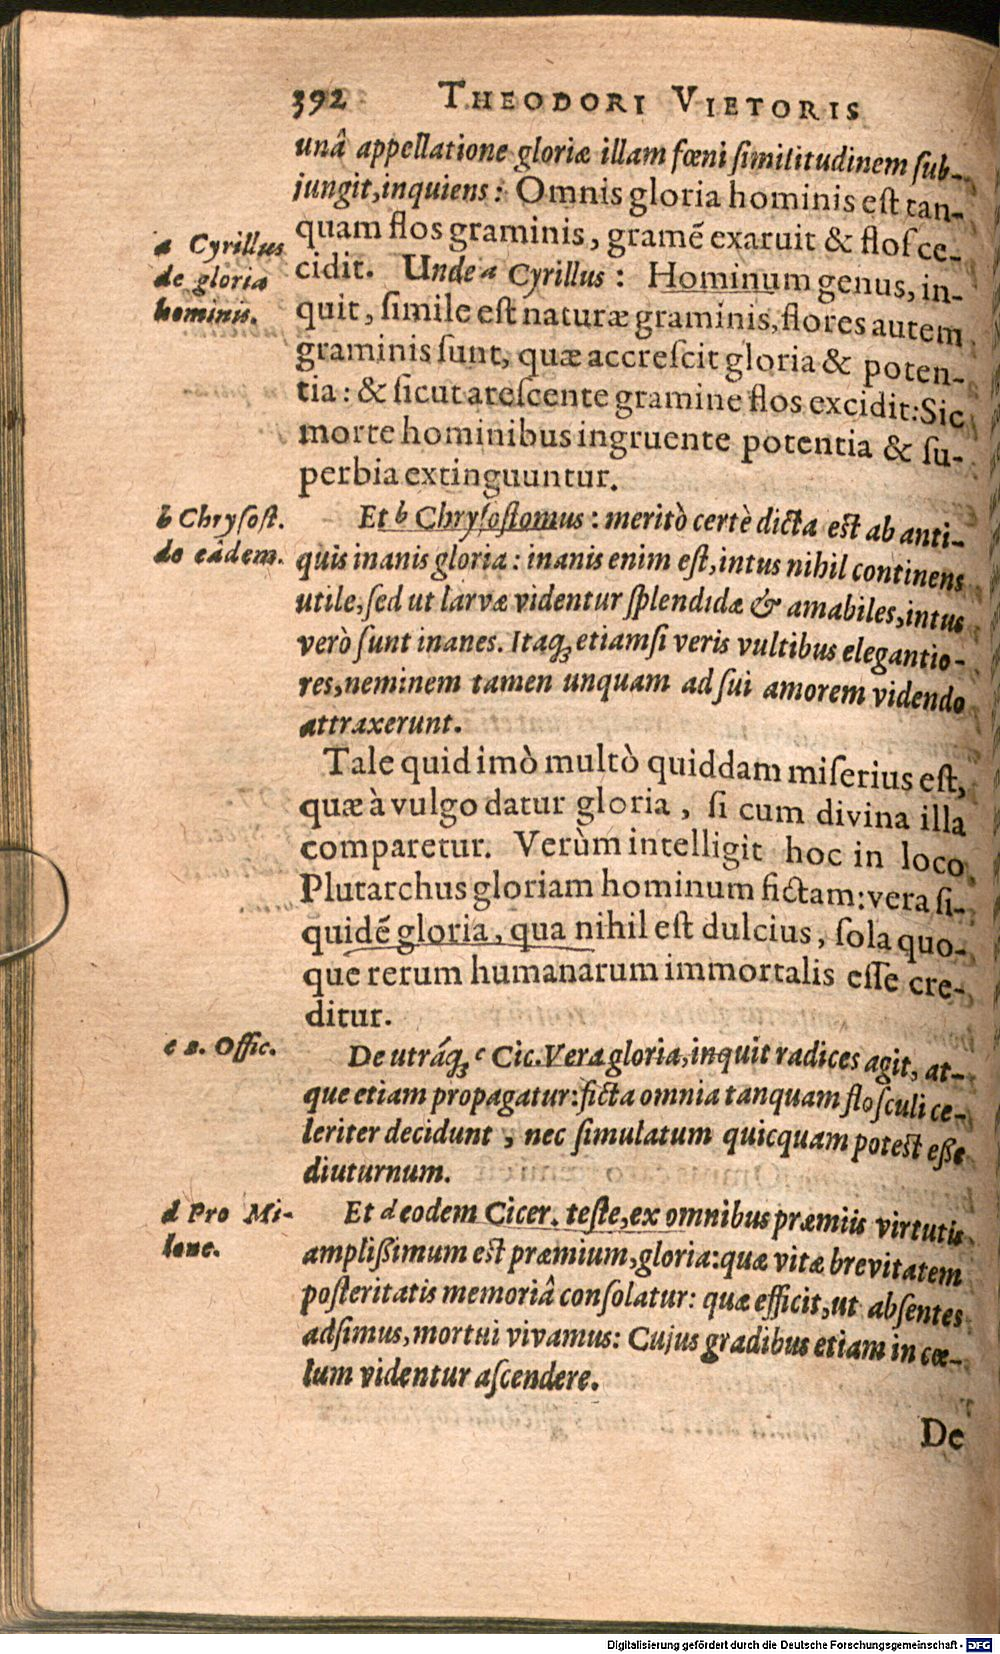 392 THEODORI VIETORIS
unâ appellatione gloriæ illam fœni ſimilitudinem ſub-
jungit, inquiens: Omnis gloria hominis eſt tan-
quam flos graminis, gramē exaruit & floſ ce-
a Cyrillus
de gloria
hominis.
cidit. Unde a Cyrillus: Hominum genus, in-
quit, ſimile eſt naturæ graminis, flores autem
graminis ſunt, quæ accreſcit gloria & poten-
tia: & ſicut areſcente gramine flos excidit: Sic
morte hominibus ingruente potentia & ſu-
perbia extinguuntur.
b Chryſoſt.
de eâdem.
Et b Chryſoſtomus: meritò certè dicta eſt ab anti-
quis inanis gloria: inanis enim eſt, intus nihil continens
utile, ſed ut larvæ videntur ſplendidæ & amabiles, intus
verò ſunt inanes. Itaq; etiamſi veris vultibus elegantio-
res, neminem tamen unquam ad ſui amorem videndo
attraxerunt.
Tale quid imò multò quiddam miſerius eſt,
quæ à vulgo datur gloria, ſi cum divina illa
comparetur. Verùm intelligit hoc in loco
Plutarchus gloriam hominum fictam: vera ſi-
quidē gloria, qua nihil eſt dulcius, ſola quo-
que rerum humanarum immortalis eſſe cre-
ditur.
c 2. Offic.
De utráq; c Cic. Vera gloria, inquit radices agit, at-
que etiam propagatur: ficta omnia tanquam floſculi ce-
leriter decidunt, nec ſimulatum quicquam poteſt eſſe
diuturnum.
d Pro Mi-
lone.
Et d eodem Cicer. teſte, ex omnibus præmiis virtutis
ampliſſimum eſt præmium, gloria: quæ vitæ brevitatem
poſteritatis memoriâ conſolatur: quæ efficit, ut abſentes
adſimus, mortui vivamus: Cujus gradibus etiam in cœ-
lum videntur aſcendere.
De
Digitalisierung gefördert durch die Deutsche Forschungsgemeinschaft - DFG